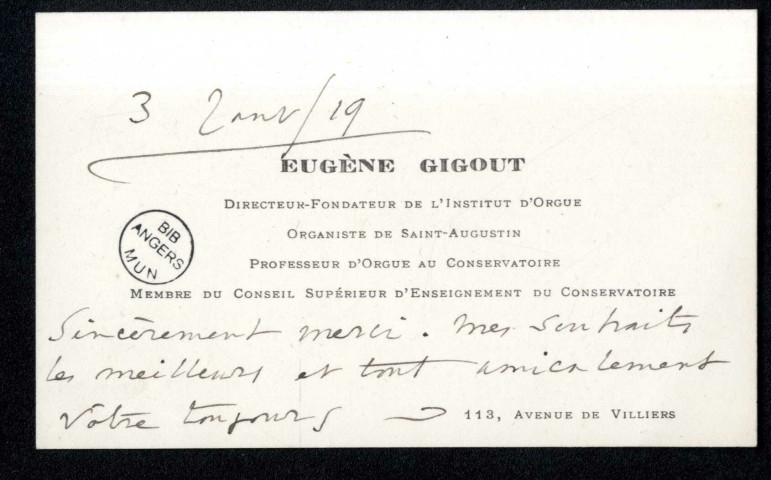 3 Janv/19
EUGÈNE GIGOUT
DIRECTEUR-FONDATEUR DE L'INSTITUT D'ORGUE
ORGANISTE DE SAINT-AUGUSTIN
PROFESSEUR D'ORGUE AU CONSERVATOIRE
MEMBRE DU CONSEIL SUPÉRIEUR D'ENSEIGNEMENT DU CONSERVATOIRE
BIB
ANGERS
MUN
Sincèrement merci. Mes souhaits
les meilleurs et tout amicalement
Votre toujours
113, AVENUE DE VILLIERS